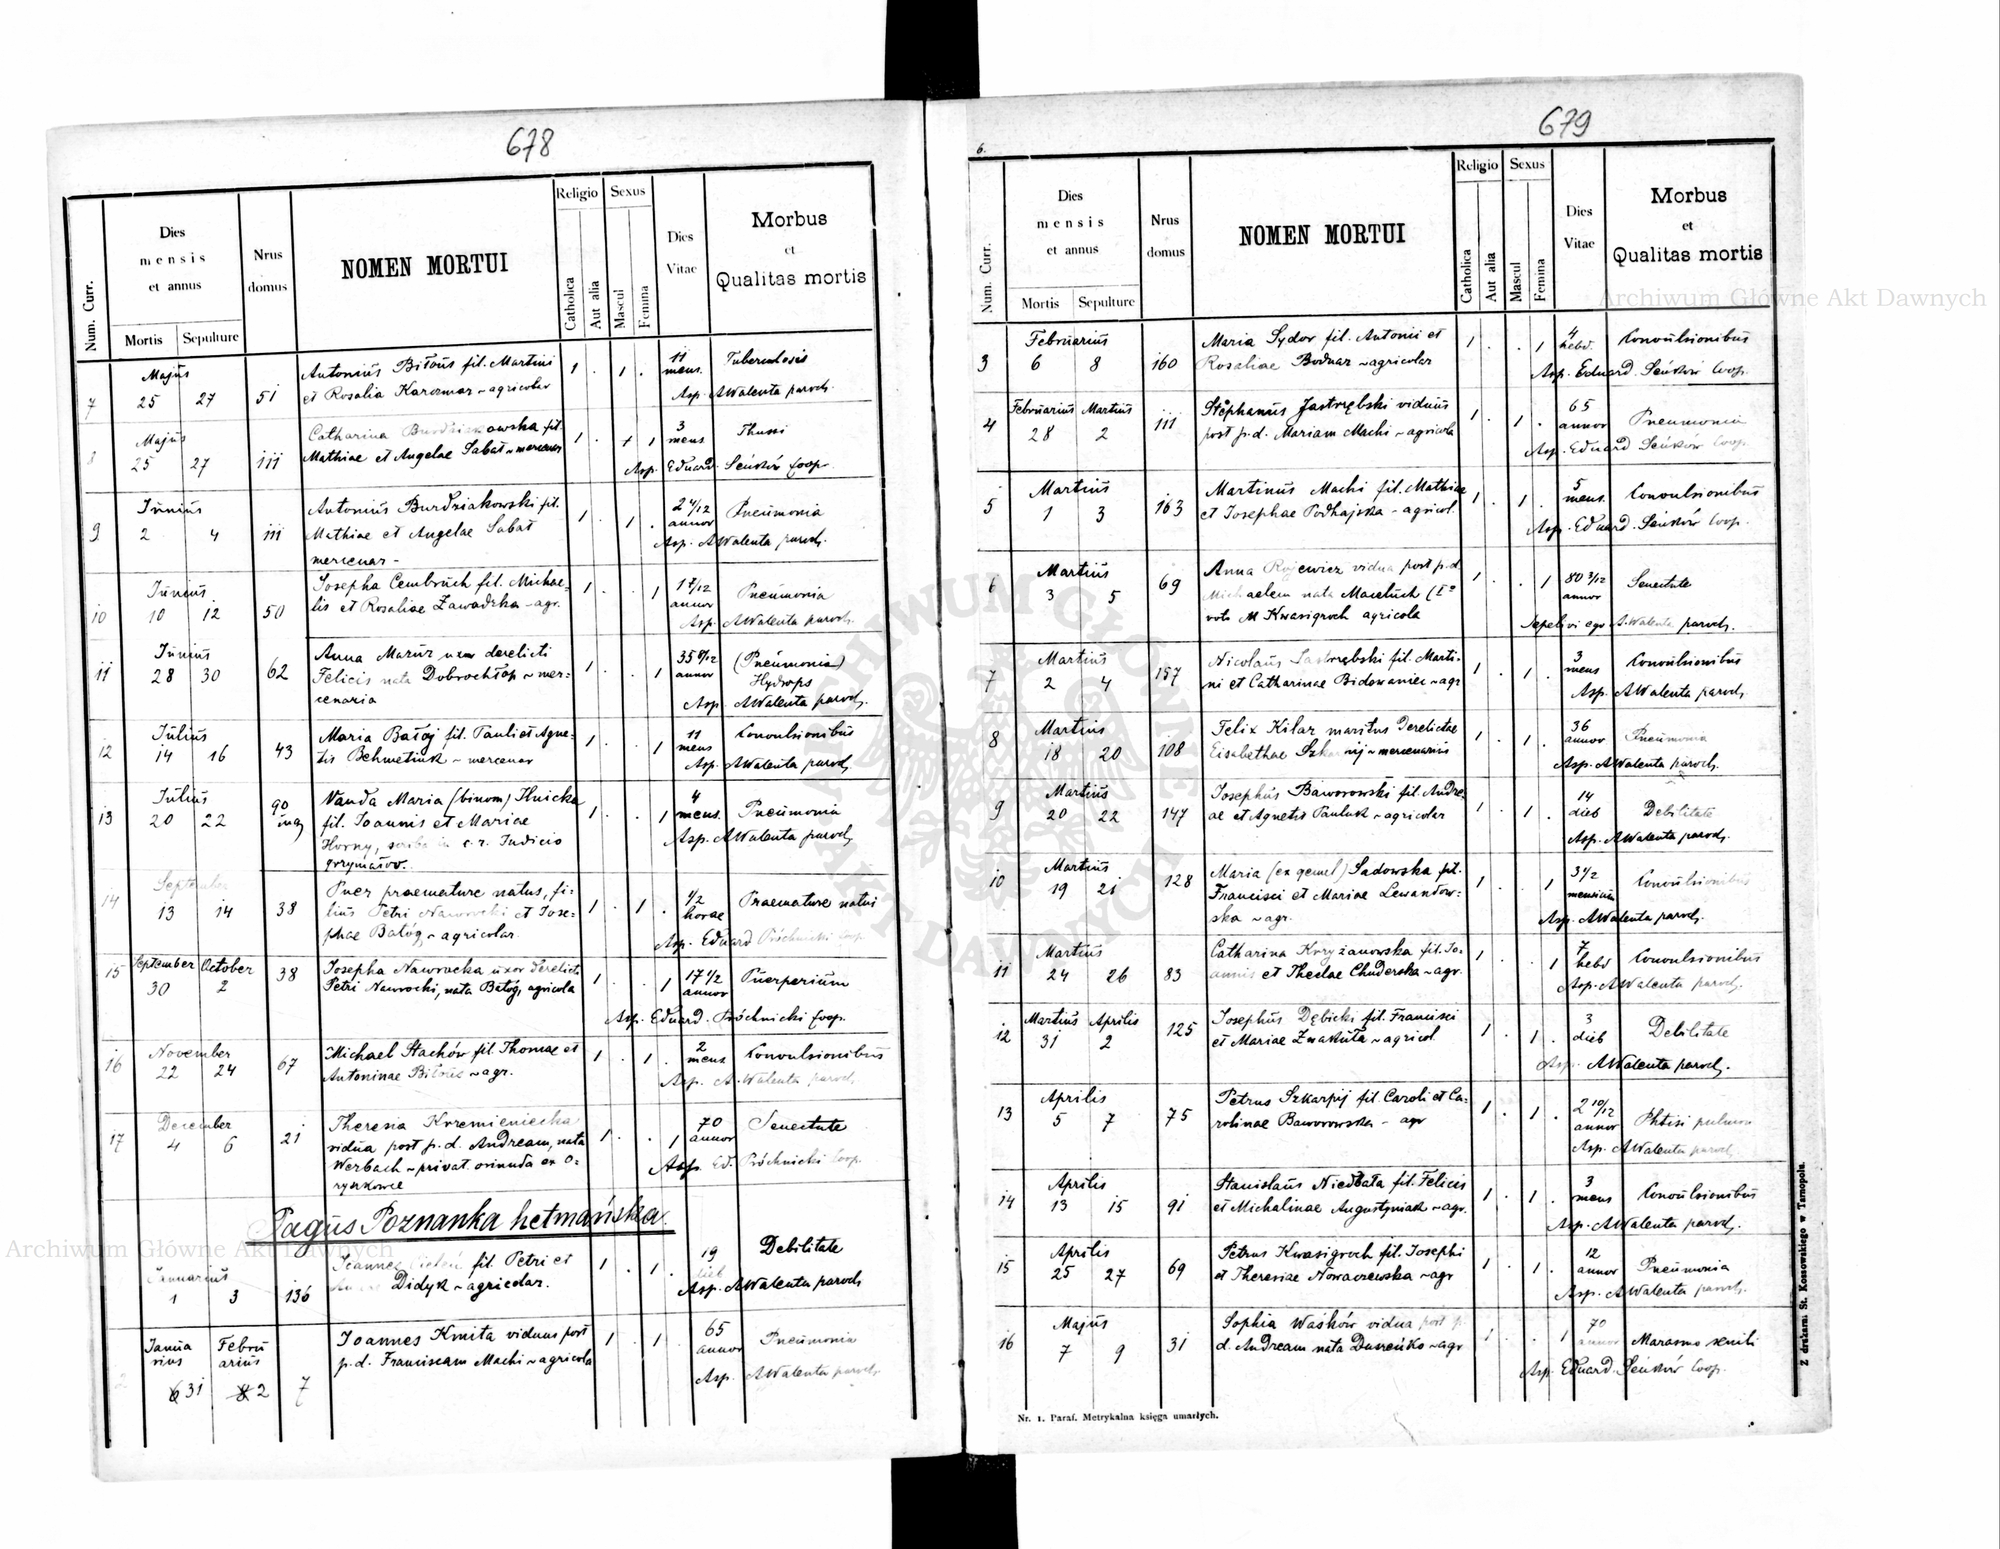 678
Num. Curr.
Dies
mensis
et annus
Mortis
Sepulture
Nrus
domus
NOMEN MORTUI
Religio
Catholica
Aut alia
Sexus
Mascul
Femina
Dies
Vitae
Morbus
et
Qualitas mortis
7 Majus 25 27 51
Antonius Bitous fil. Martini
et Rosalia Karczmar ~ agricolar
1 . 1 . 11 mens. Tuberculosis
Asp. AWalenta paroch.
8 Majus 25 27 111
Catharina Burdziakowska fil.
Mathiae et Angelae Sabat ~ mercenar
1 . 1 3 mens Thussi
Asp. Eduard Seńków Coop.
9 Junius 2 4 111
Antonius Burdziakowski fil.
Mathiae et Angelae Sabat
mercenar -
1 . 1 . 2 4/12 annor Pneumonia
Asp. AWalenta paroch.
10 Junius 10 12 50
Josepha Cembruch fil. Michae-
lis et Rosaliae Zawadzka ~ agr.
1 . . 1 1 7/12 annor Pneumonia
Asp. AWalenta paroch.
11 Junius 28 30 62
Anna Mazur uxor derelicti
Felicis nata Dobrochłop ~ mer-
cenaria
1 . . 1 35 8/12 annor (Pneumonia)
Hydrops
Asp. AWalenta paroch.
12 Julius 14 16 43
Maria Batóg fil. Pauli et Agne-
tis Behmetiuk ~ mercenar
1 . . 1 11 mens Convulsionibus
Asp. AWalenta paroch.
13 Julius 20 22 90
Vanda Maria (binom) Ilnicka
fil. Joannis et Mariae
Horny, scriba c. r. Judicio
grzymałov.
1 . . 1 4 mens. Pneumonia
Asp. AWalenta paroch.
14 September 13 14 38
Puer praemature natus, fi-
lius Petri Nawrocki et Jose-
phae Batóg ~ agricolar.
1 . 1 . 1/2 horae Praemature natus
Asp. Eduard Próchnicki Coop.
15 September October 30 2 38
Josepha Nawrocka uxor derelicti
Petri Nawrocki, nata Batóg, agricola
1 . . 1 17 1/2 annor Puerperium
Asp. Eduard. Próchnicki Coop.
16 November 22 24 67
Michael Stachów fil Thomae et
Antoninae Bitous ~ agr.
1 . 1 . 2 mens Convulsionibus
Asp. A. Walenta paroch.
17 December 4 6 21
Theresia Krzemieniecka
vidua post p. d. Andream, nata
Werbach ~ privat. oriunda ex O-
ryszkowce
1 . . 1 70 annor Senectute
Asp. Ed. Próchnicki Coop.
Pagus Poznanka hetmańska.
Januarius 1 3 136
Joannes fil. Petri et
Didyk ~ agricolar.
1 . 1 . 19 dieb Debilitate
Asp. AWalenta paroch.
2 Janua rius Febru arius 31 2 7
Joannes Kmita viduus post
p. d. Franciscam Machi ~ agricola
1 . 1 . 65 annor Pneumonia
Asp. AWalenta paroch.
679
6.
Num. Curr.
Dies
mensis
et annus
Mortis
Sepulture
Nrus
domus
NOMEN MORTUI
Religio
Catholica
Aut alia
Sexus
Mascul
Femina
Dies
Vitae
Morbus
et
Qualitas mortis
3 Februarius 6 8 160
Maria Sydor fil. Antonii et
Rosaliae Bodnar ~ agricolar
1 . . 1 4 hebd. Convulsionibus
Asp. Eduard. Seńków Coop.
4 Februarius Martius 28 2 111
Stephanus Jastrzębski viduus
post p. d. Mariam Machi ~ agricola
1 . 1 . 65 annor Pneumonia
Asp. Eduard Seńków Coop.
5 Martius 1 3 163
Martinus Machi fil. Mathiae
et Josephae Podhajska - agricol.
1 . 1 . 5 mens. Convulsionibus
Asp. Eduard. Seńków Coop.
6 Martius 3 5 69
Anna Rojewicz vidua post p. d.
Michaelem nata Maceluch (Iº
voto M Kwasigroch agricola
1 . . 1 80 3/12 annor Senectute
Sepelivi ego A. Walenta paroch.
7 Martius 2 4 157
Nicolaus Jastrzębski fil. Marti-
ni et Catharinae Bidowaniec ~ agr
1 . 1 . 3 mens Convulsionibus
Asp. AWalenta paroch.
8 Martius 18 20 108
Felix Kilar maritus derelictae
Elisabethae ~ mercenarius
1 . 1 . 36 annor Pneumonia
Asp. AWalenta paroch.
9 Martius 20 22 147
Josephus Baworowski fil. Andre-
ae et Agnetis Pauluk ~ agricolar
1 . 1 . 14 dieb Debilitate
Asp. AWalenta paroch.
10 Martius 19 21 128
Maria (ex gemel) Sadowska fil.
Francisci et Mariae Lewandow-
ska ~ agr.
1 . . 1 3 1/2 mensium Convulsionibus
Asp. AWalenta paroch.
11 Martius 24 26 83
Catharina Kryżanowska fil. Jo-
annis et Theclae Chuderska ~ agr.
1 . . 1 7 hebd Convulsionibus
Asp. AWalenta paroch.
12 Martius Aprilis 31 2 125
Josephus Dębicki fil. Francisci
et Mariae Zmakuła ~ agricol.
1 . 1 . 3 dieb Debilitate
Asp. AWalenta paroch.
13 Aprilis 5 7 75
Petrus Szkarpij fil. Caroli et Ca-
rolinae Baworowska - agr
1 . 1 . 2 10/12 annor Phtisi pulmon
Asp. AWalenta paroch.
14 Aprilis 13 15 91
Stanislaus Niedbała fil. Felicis
et Michalinae Augustyniak ~ agr.
1 . 1 . 3 mens Convulsionibus
Asp. AWalenta paroch.
15 Aprilis 25 27 69
Petrus Kwasigroch fil. Josephi
et Theresiae Nowaczewska ~ agr
1 . 1 . 12 annor Pneumonia
Asp. AWalenta paroch.
16 Majus 7 9 31
Sophia Waśków vidua post p.
d. Andream nata Duszeńko ~ agr
1 . . 1 70 annor Marasmo senili
Asp. Eduard. Seńków Coop.
Nr. 1. Paraf. Metrykalna księga umarłych.
Z drukarni St. Kossowskiego w Tarnopolu.
Archiwum Główne Akt Dawnych
Archiwum Główne Akt Dawnych
ARCHIWUM GŁÓWNE AKT DAWNYCH